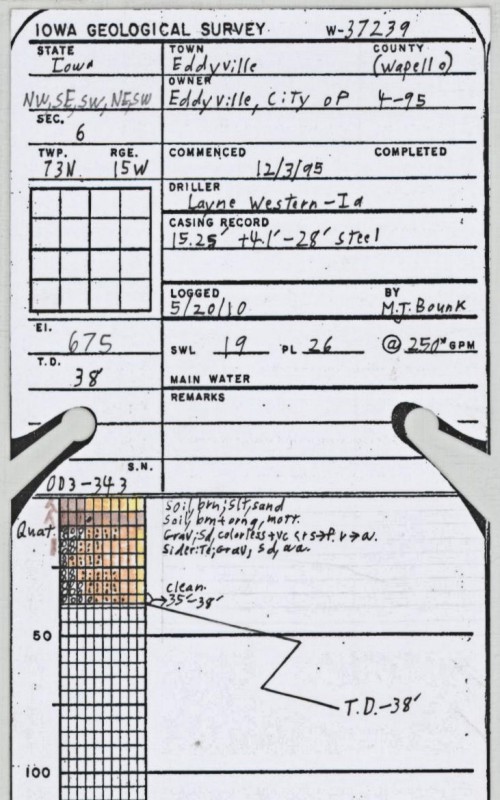 IOWA GEOLOGICAL SURVEY W-37239
STATE TOWN COUNTY
Iowa Eddyville (Wapello)
OWNER
NW, SE, SW, NE, SW Eddyville, City of 4-95
SEC.
6
TWP. RGE. COMMENCED COMPLETED
73N 15W 12/3/95
DRILLER
Layne Western-Ia
CASING RECORD
15.25" +4.1'-28' steel
LOGGED BY
5/20/10 M.J. Bounk
El.
675 SWL 19 PL 26 @ 250* GPM
T.D.
38' MAIN WATER
REMARKS
S.N.
OD3-343
Soil, brn; slt, sand
Soil, brn + orng, mott.
Quat. Grav; Sd, colorless + vc
Siderite; Grav, Sd, a.a.
clean
35'-38'
50
T.D.-38'
100